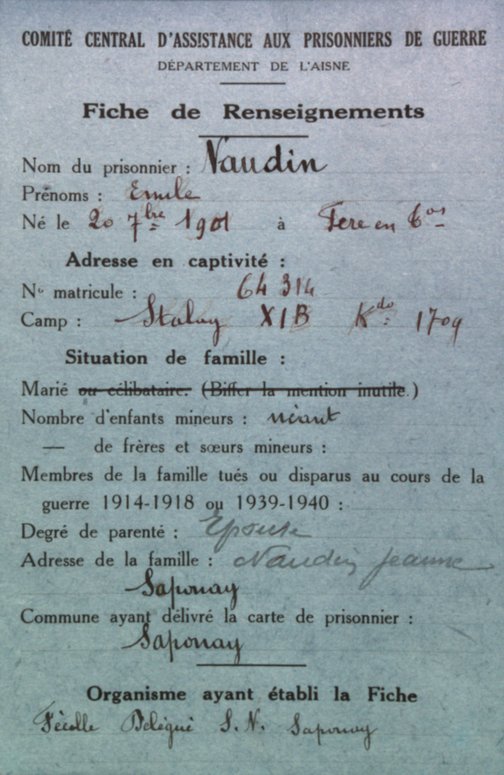 COMITÉ CENTRAL D'ASSISTANCE AUX PRISONNIERS DE GUERRE
DÉPARTEMENT DE L'AISNE
Fiche de Renseignements
Nom du prisonnier : Naudin
Prénoms : Emile
Né le 20 7bre 1901 à Fere en
Adresse en captivité :
No matricule : 64 314
Camp : Stalag XIB Kdo 1709
Situation de famille :
Marié ou célibataire. (Biffer la mention inutile.)
Nombre d'enfants mineurs : néant
— de frères et sœurs mineurs :
Membres de la famille tués ou disparus au cours de la
guerre 1914-1918 ou 1939-1940 :
Degré de parenté : Epouse
Adresse de la famille : Naudin Jeanne
Saponay
Commune ayant délivré la carte de prisonnier :
Saponay
Organisme ayant établi la Fiche
Délégué S.N. Saponay